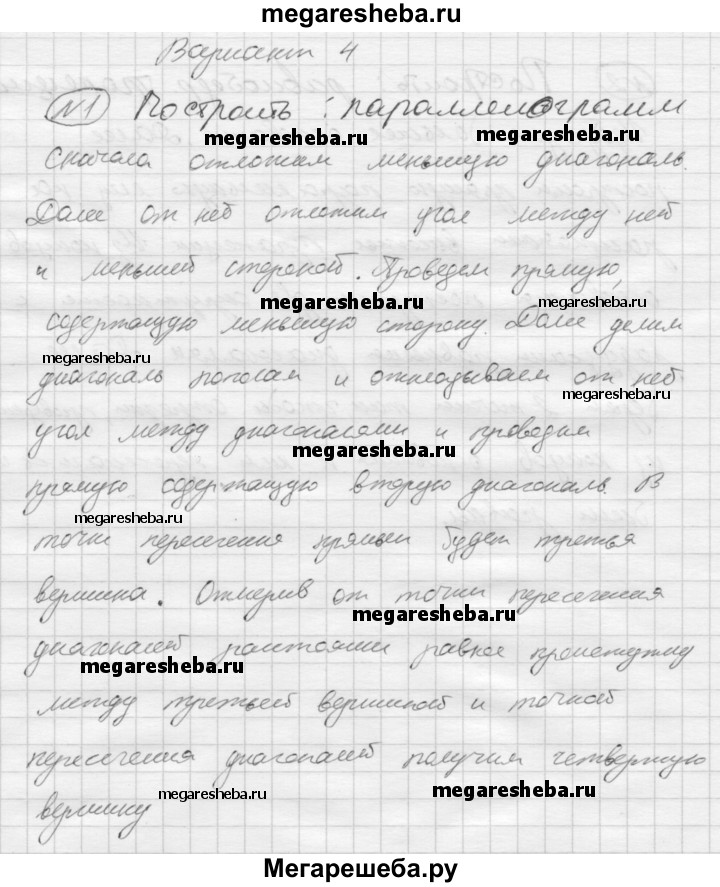 megaresheba.ru
Вариант 4
№1 Построить: параллелограмм
megaresheba.ru
megaresheba.ru
Сначала отложим меньшую диагональ.
Далее от неё отложим угол между ней
и меньшей стороной. Проведем прямую,
megaresheba.ru
megaresheba.ru
содержащую меньшую сторону. Далее делим
megaresheba.ru
диагональ пополам и откладываем от неё
megaresheba.ru
угол между диагоналями и проводим
megaresheba.ru
прямую содержащую вторую диагональ. В
megaresheba.ru
точки пересечения прямых будет третья
вершина. Отмерив от точки пересечения
megaresheba.ru
диагоналей расстояние равное промежутку
megaresheba.ru
между третьей вершиной и точкой
пересечения диагоналей получим четвертую
megaresheba.ru
megaresheba.ru
вершину
Мегарешеба.ру